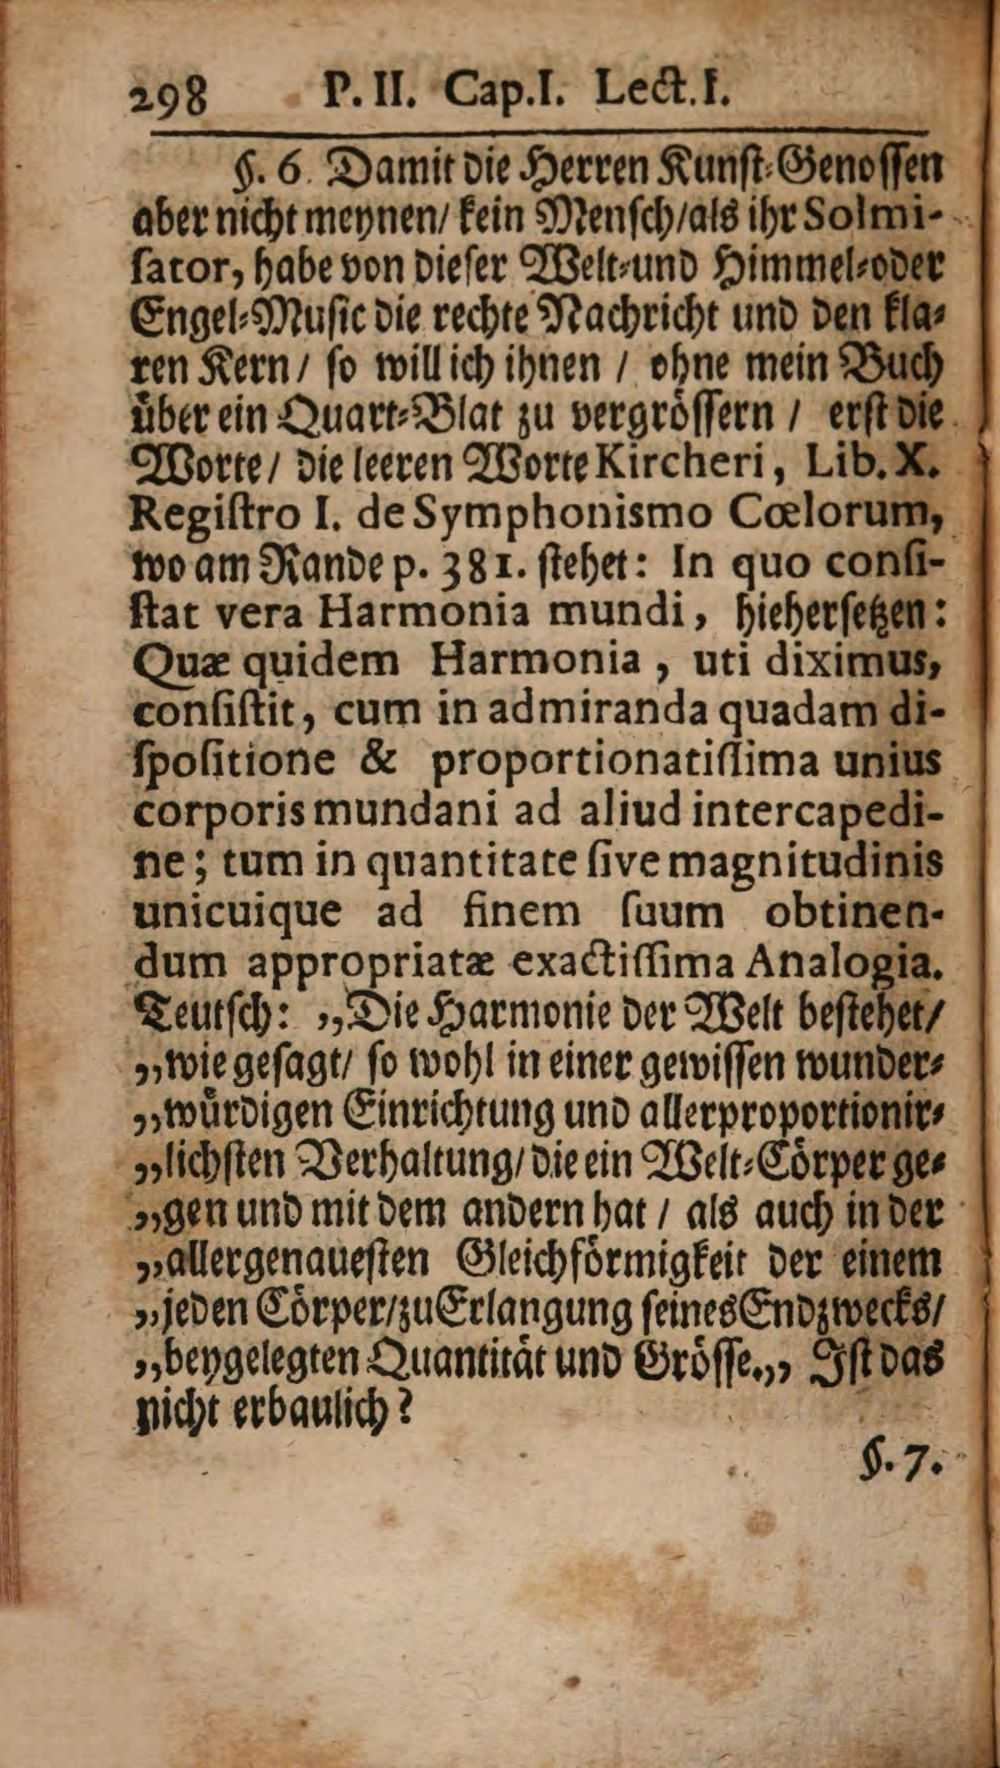 298 P. II. Cap. I. Lect. I.
§. 6. Damit die Herren Kunſt-Genoſſen
aber nicht meynen/ kein Menſch/als ihr Solmi-
ſator, habe von dieſer Welt-und Himmel-oder
Engel-Muſic die rechte Nachricht und den kla-
ren Kern/ ſo will ich ihnen / ohne mein Buch
uͤber ein Quart-Blat zu vergroͤſſern / erſt die
Worte/ die leeren Worte Kircheri, Lib. X.
Regiſtro I. de Symphonismo Cœlorum,
wo am Rande p. 381. ſtehet: In quo conſi-
ſtat vera Harmonia mundi, hieherſetzen:
Quæ quidem Harmonia, uti diximus,
conſiſtit, cum in admiranda quadam di-
ſpoſitione & proportionatiſſima unius
corporis mundani ad aliud intercapedi-
ne; tum in quantitate ſive magnitudinis
unicuique ad finem ſuum obtinen-
dum appropriatæ exactiſſima Analogia.
Teutſch: „Die Harmonie der Welt beſtehet/
„wie geſagt/ ſo wohl in einer gewiſſen wunder-
„wuͤrdigen Einrichtung und allerproportionir-
„lichſten Verhaltung/ die ein Welt-Coͤrper ge-
„gen und mit dem andern hat / als auch in der
„allergenaueſten Gleichfoͤrmigkeit der einem
„jeden Coͤrper/zu Erlangung ſeines Endzwecks/
„beygelegten Quantitaͤt und Groͤſſe.„ Iſt das
nicht erbaulich?
§. 7.